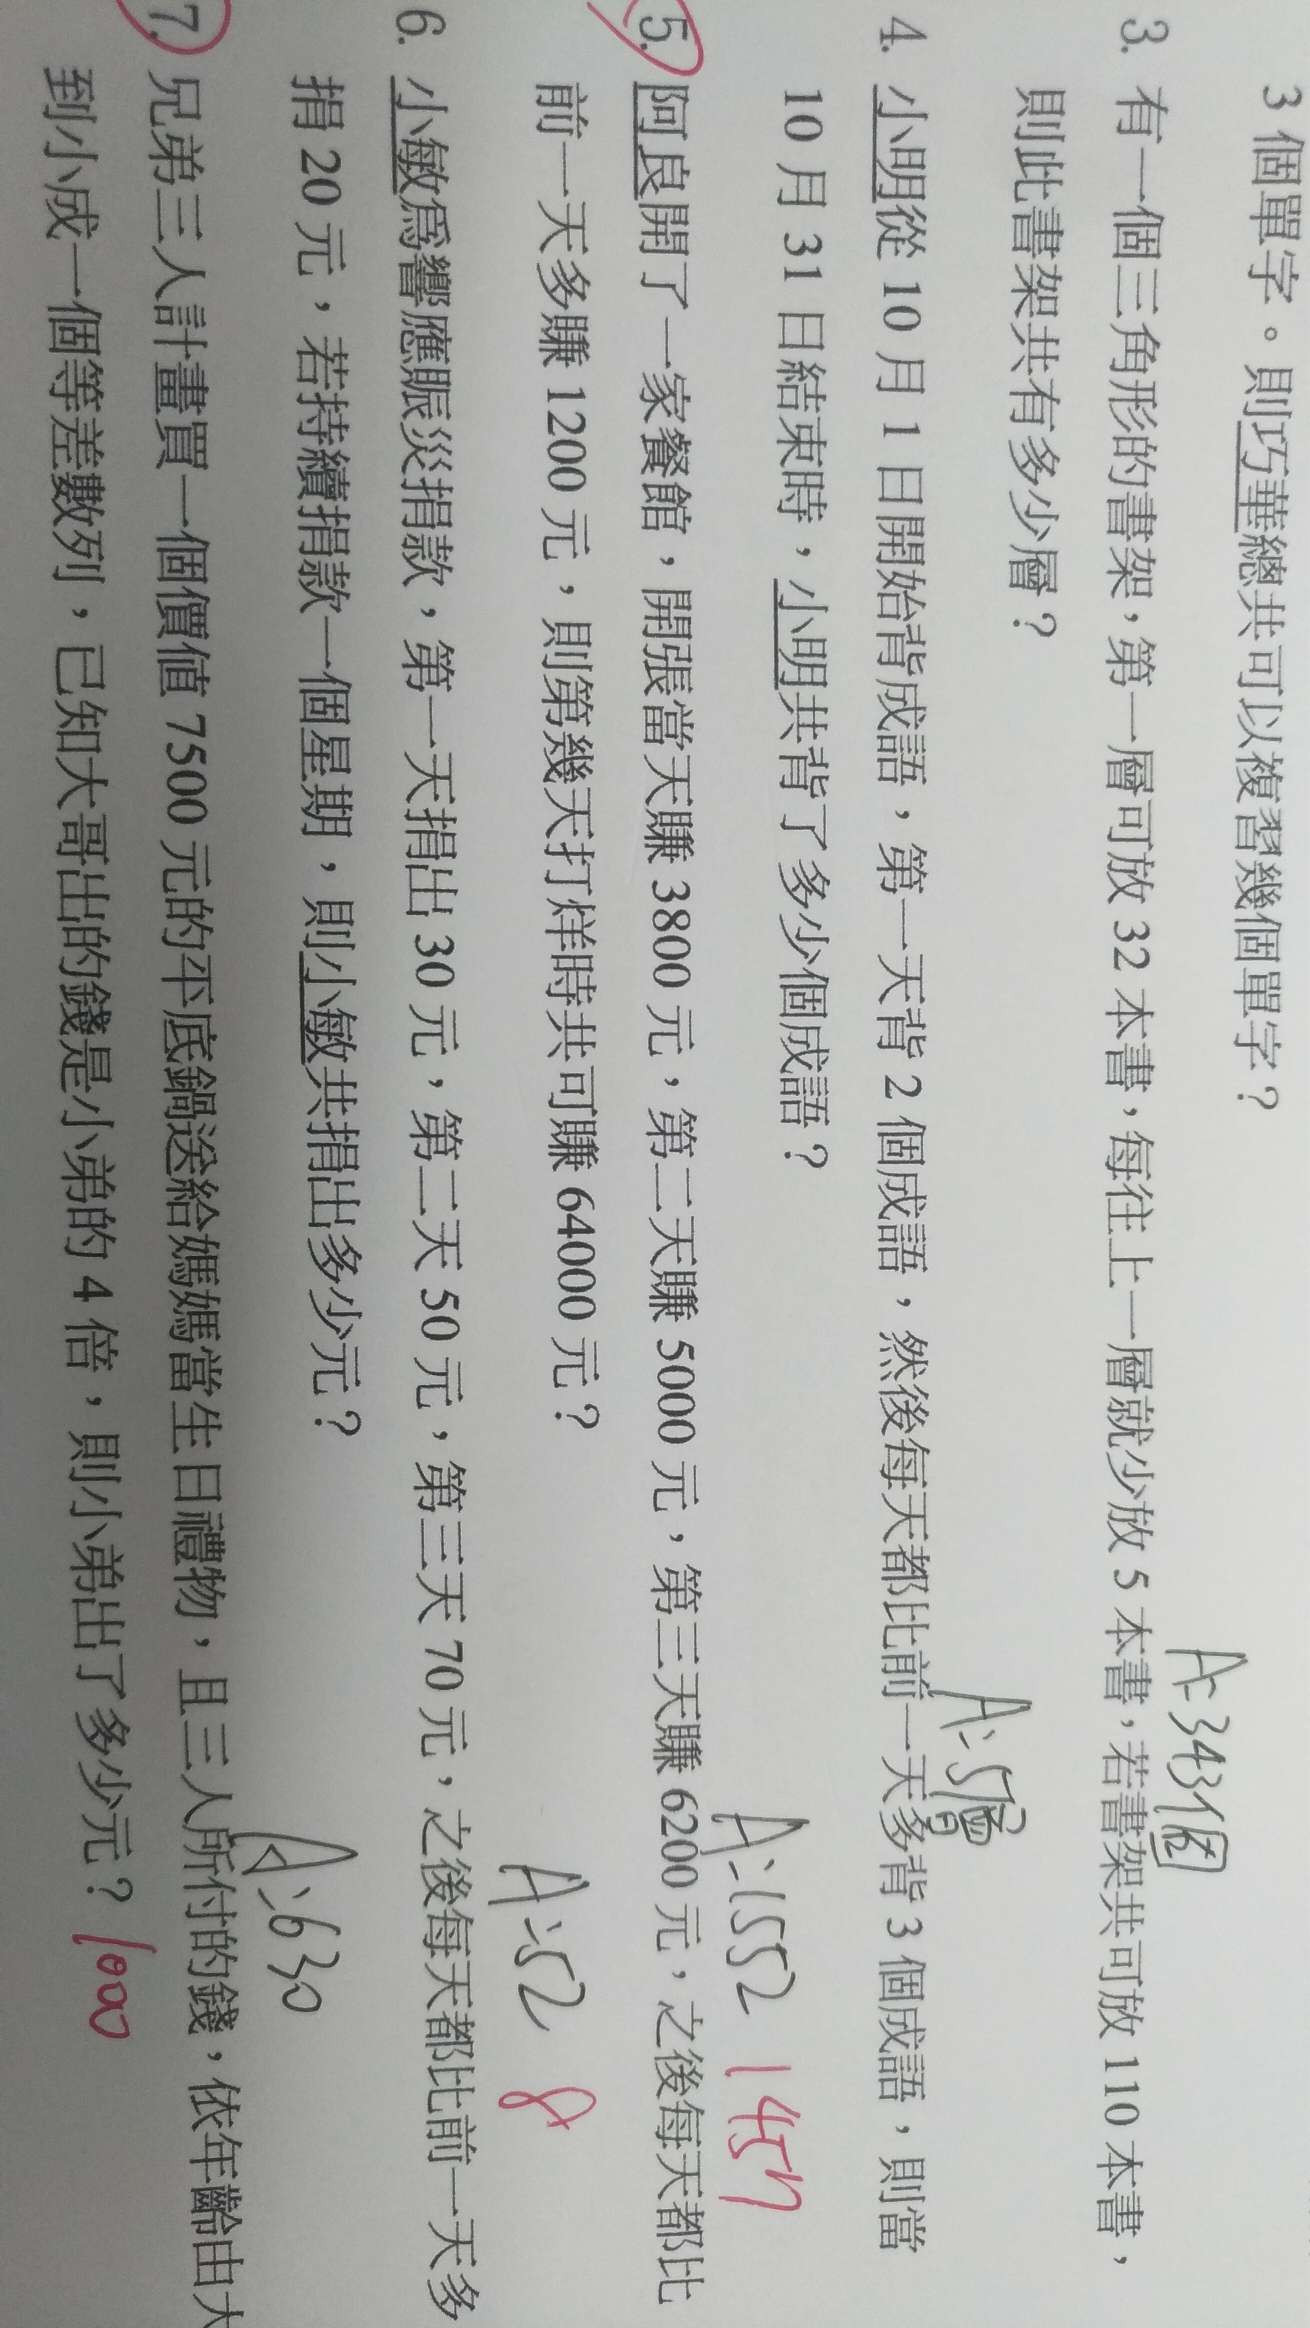 3 個單字。則巧華總共可以複習幾個單字?
A:343個
3. 有一個三角形的書架,第一層可放 32 本書,每往上一層就少放 5 本書,若書架共可放 110 本書,
則此書架共有多少層?
A:5層
4. 小明從 10 月 1 日開始背成語,第一天背 2 個成語,然後每天都比前一天多背 3 個成語,則當
10 月 31 日結束時,小明共背了多少個成語?
A:1552 1457
5. 阿良開了一家餐館,開張當天賺 3800 元,第二天賺 5000 元,第三天賺 6200 元,之後每天都比
前一天多賺 1200 元,則第幾天打烊時共可賺 64000 元?
A:52 8
6. 小敏為響應賑災捐款,第一天捐出 30 元,第二天 50 元,第三天 70 元,之後每天都比前一天多
捐 20 元,若持續捐款一個星期,則小敏共捐出多少元?
A:630
7. 兄弟三人計畫買一個價值 7500 元的平底鍋送給媽媽當生日禮物,且三人所付的錢,依年齡由大
到小成一個等差數列,已知大哥出的錢是小弟的 4 倍,則小弟出了多少元? 1000